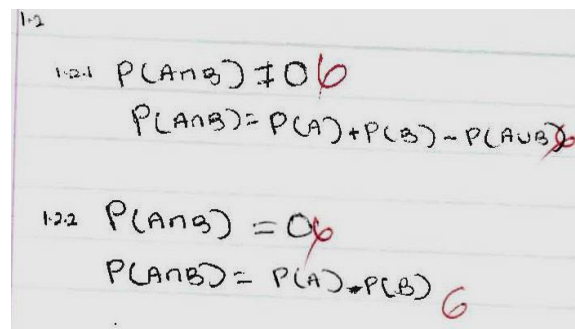 1.2
1.2.1 P(A∩B) ≠ 0
P(A∩B) = P(A) + P(B) - P(A∪B)
1.2.2 P(A∩B) = 0
P(A∩B) = P(A) . P(B)